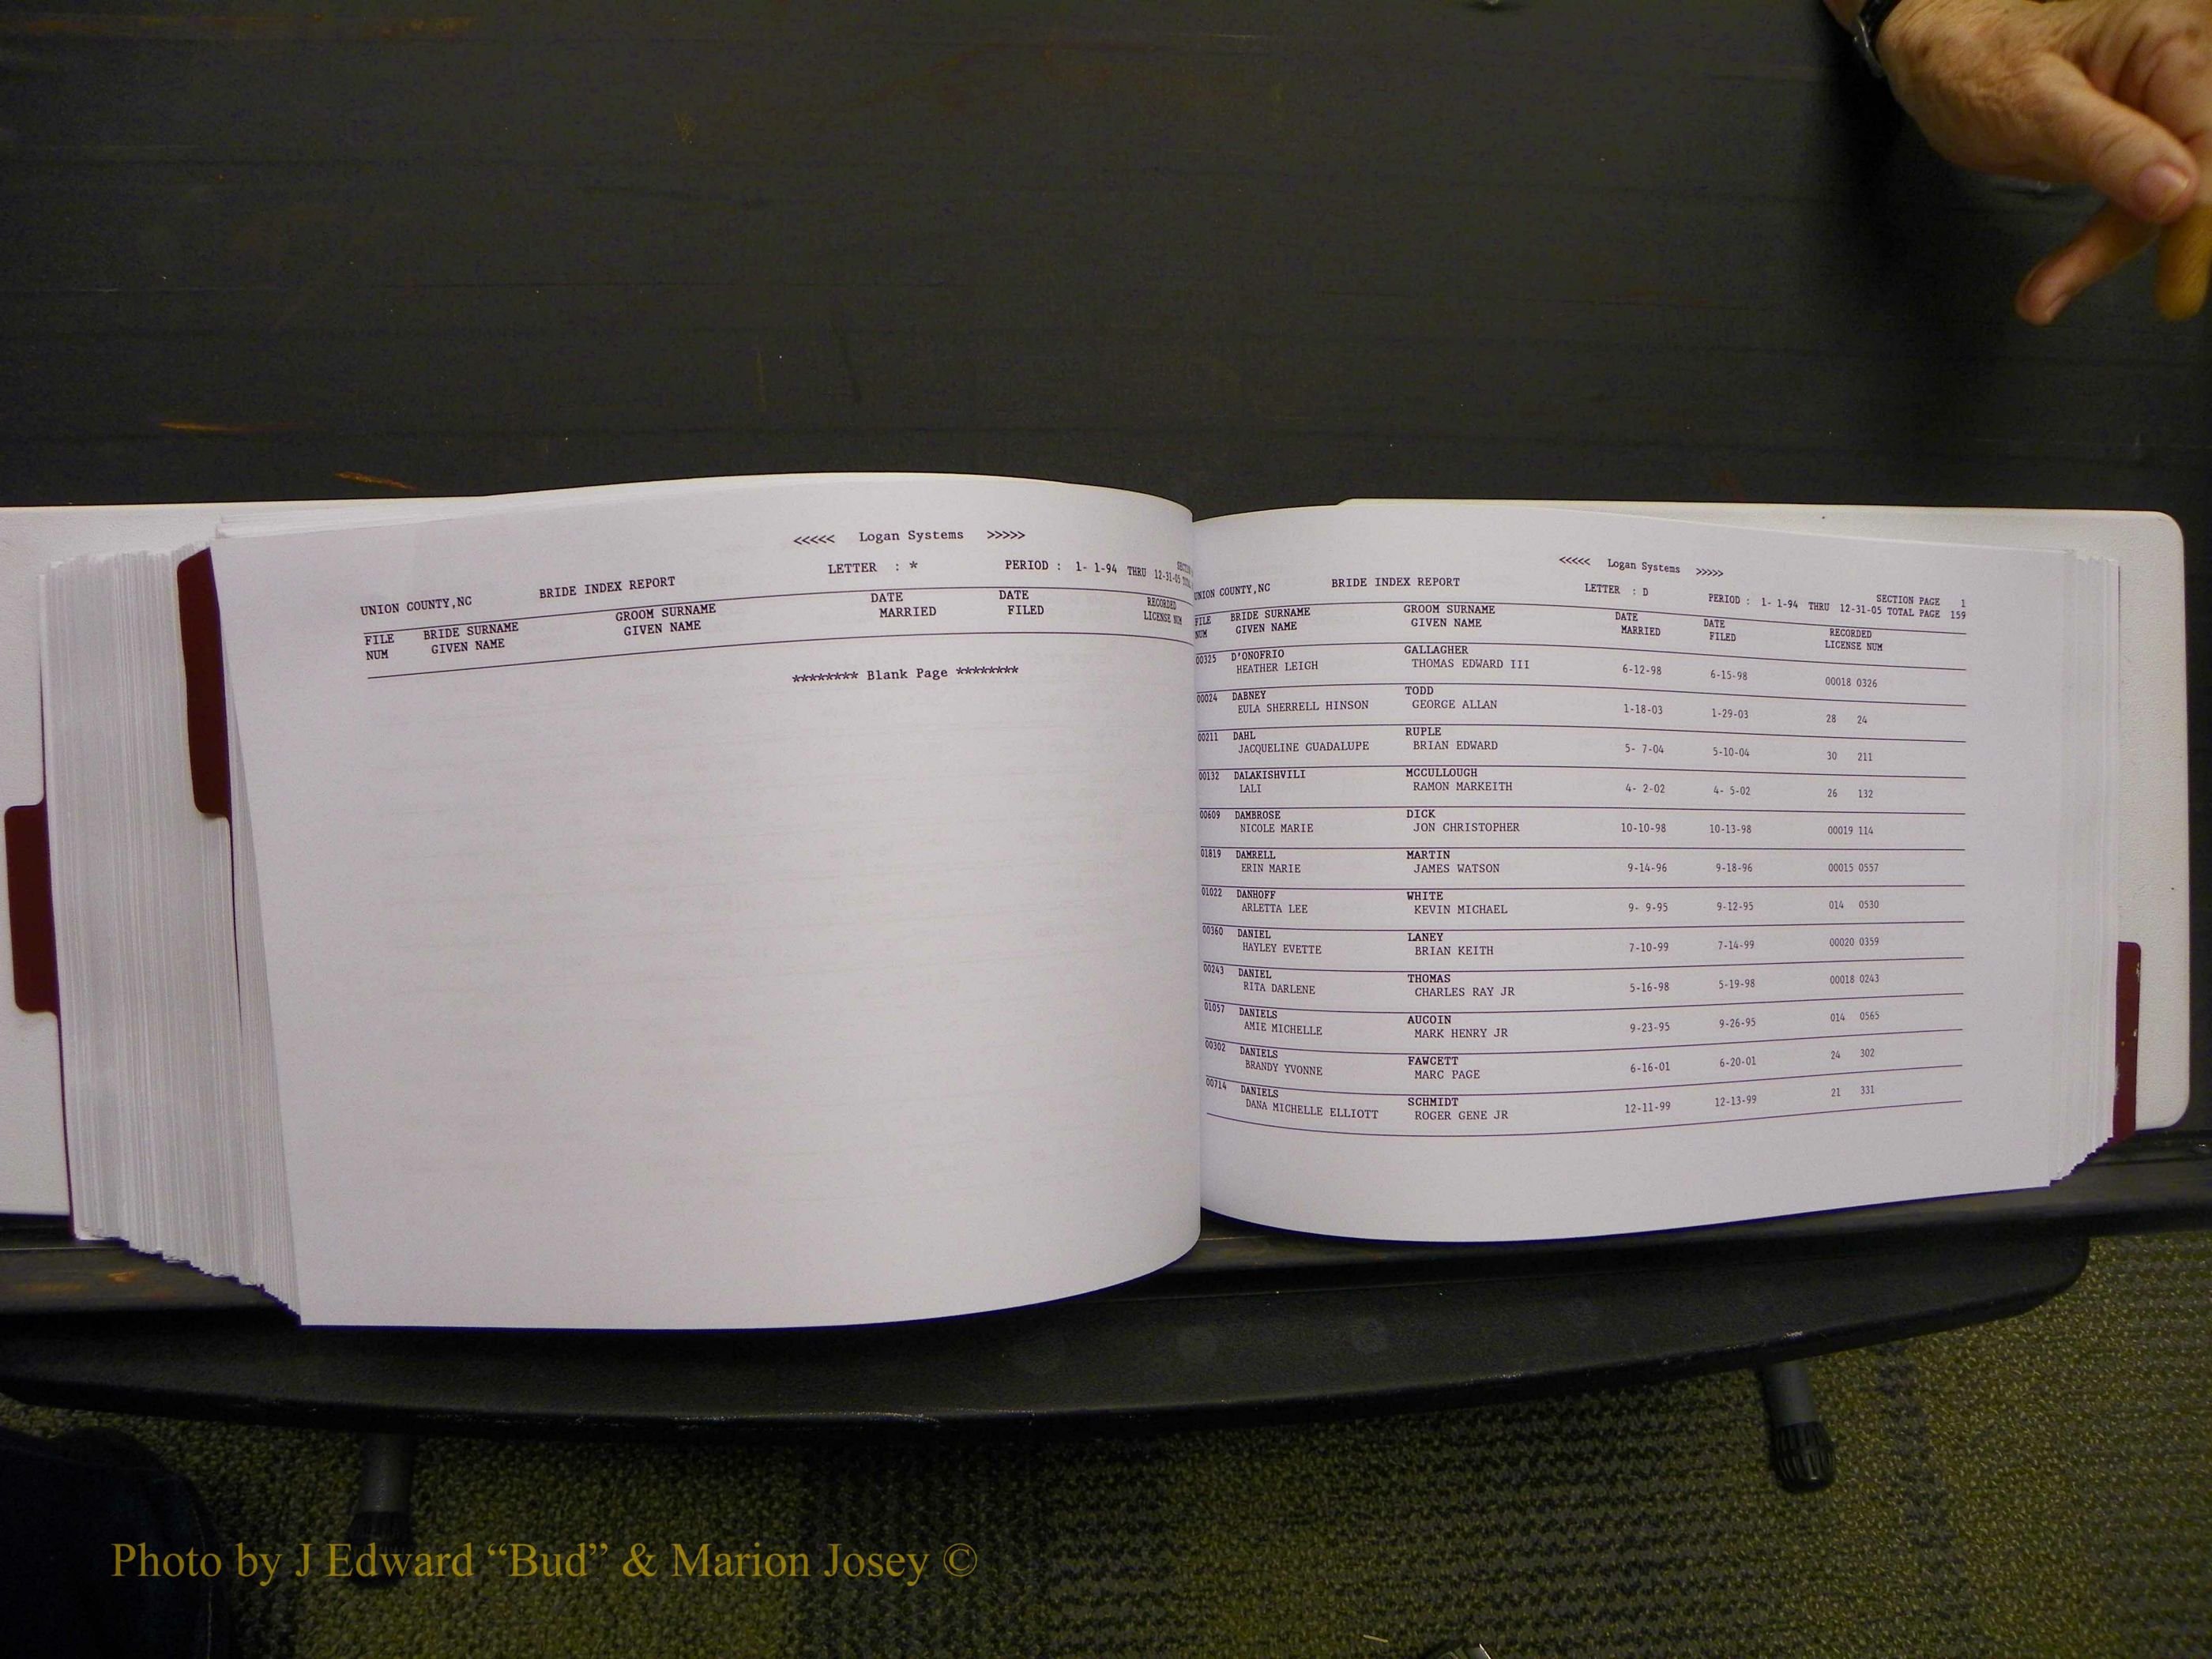 <<<<< Logan Systems >>>>>
UNION COUNTY,NC BRIDE INDEX REPORT LETTER : * PERIOD : 1- 1-94 THRU 12-31-05
FILE BRIDE SURNAME GROOM SURNAME DATE DATE RECORDED
NUM GIVEN NAME GIVEN NAME MARRIED FILED LICENSE NUM
******** Blank Page ********
<<<<< Logan Systems >>>>>
UNION COUNTY,NC BRIDE INDEX REPORT LETTER : D SECTION PAGE 1
PERIOD : 1- 1-94 THRU 12-31-05 TOTAL PAGE 159
FILE BRIDE SURNAME GROOM SURNAME DATE DATE RECORDED
NUM GIVEN NAME GIVEN NAME MARRIED FILED LICENSE NUM
00325 D'ONOFRIO GALLAGHER
HEATHER LEIGH THOMAS EDWARD III 6-12-98 6-15-98 00018 0326
00024 DABNEY TODD
EULA SHERRELL HINSON GEORGE ALLAN 1-18-03 1-29-03 28 24
00211 DAHL RUPLE
JACQUELINE GUADALUPE BRIAN EDWARD 5- 7-04 5-10-04 30 211
00132 DALAKISHVILI MCCULLOUGH
LALI RAMON MARKEITH 4- 2-02 4- 5-02 26 132
00609 DAMBROSE DICK
NICOLE MARIE JON CHRISTOPHER 10-10-98 10-13-98 00019 114
01819 DAMRELL MARTIN
ERIN MARIE JAMES WATSON 9-14-96 9-18-96 00015 0557
01022 DANHOFF WHITE
ARLETTA LEE KEVIN MICHAEL 9- 9-95 9-12-95 014 0530
00360 DANIEL LANEY
HAYLEY EVETTE BRIAN KEITH 7-10-99 7-14-99 00020 0359
00243 DANIEL THOMAS
RITA DARLENE CHARLES RAY JR 5-16-98 5-19-98 00018 0243
01057 DANIELS AUCOIN
AMIE MICHELLE MARK HENRY JR 9-23-95 9-26-95 014 0565
00302 DANIELS FAWCETT
BRANDY YVONNE MARC PAGE 6-16-01 6-20-01 24 302
00714 DANIELS SCHMIDT
DANA MICHELLE ELLIOTT ROGER GENE JR 12-11-99 12-13-99 21 331
Photo by J Edward “Bud” & Marion Josey ©